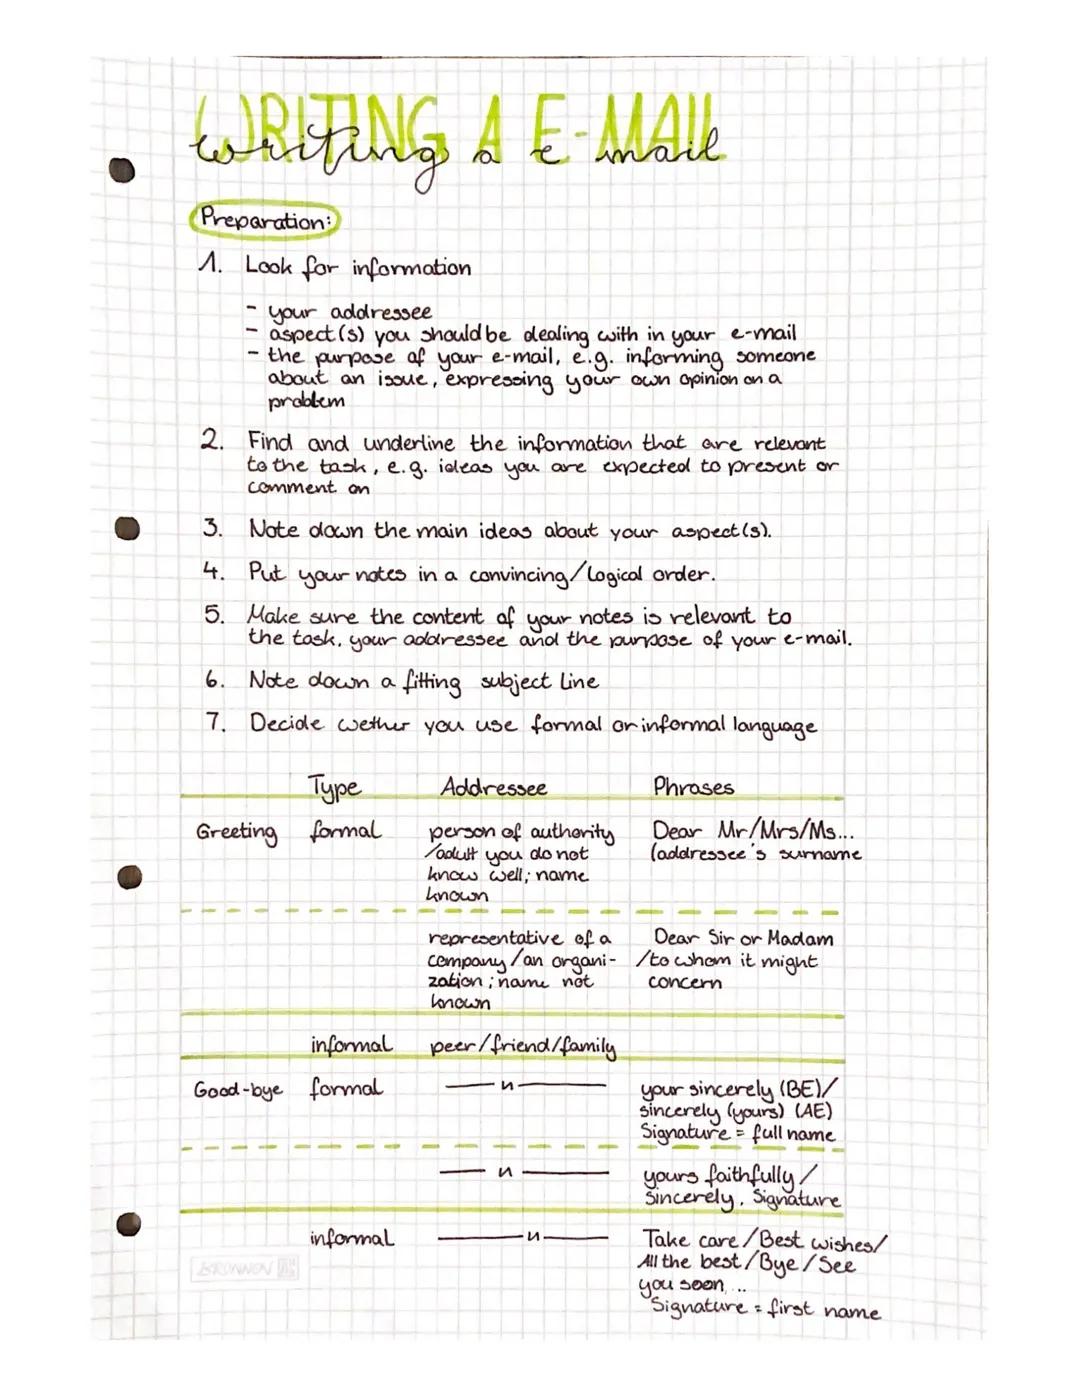 WRITING A E-MAIL
writing a e mail
Preparation:
1. Look for information
- your addressee
- aspect(s) you should be dealing with in your e-mail
- the purpose of your e-mail, e.g. informing someone
about an issue, expressing your own opinion on a
problem
2. Find and underline the information that are relevant
to the task, e.g. ideas you are expected to present or
comment on
3. Note down the main ideas about your aspect(s).
4. Put your notes in a convincing/logical order.
5. Make sure the content of your notes is relevant to
the task, your addressee and the purpose of your e-mail.
6. Note down a fitting subject line
7. Decide wether you use formal or informal language
Type Addressee Phrases
Greeting formal person of authority Dear Mr/Mrs/Ms...
/adult you do not (addressee's surname
know well; name
known
representative of a Dear Sir or Madam
company/an organi- /to whom it might
zation; name not concern
known
informal peer/friend/family
Good-bye formal —— " —— your sincerely (BE)/
sincerely (yours) (AE)
Signature = full name
—— " —— yours faithfully/
Sincerely. Signature
informal —— " —— Take care/Best wishes/
All the best/Bye/See
you soon, ..
Signature = first name
BRUNNEN